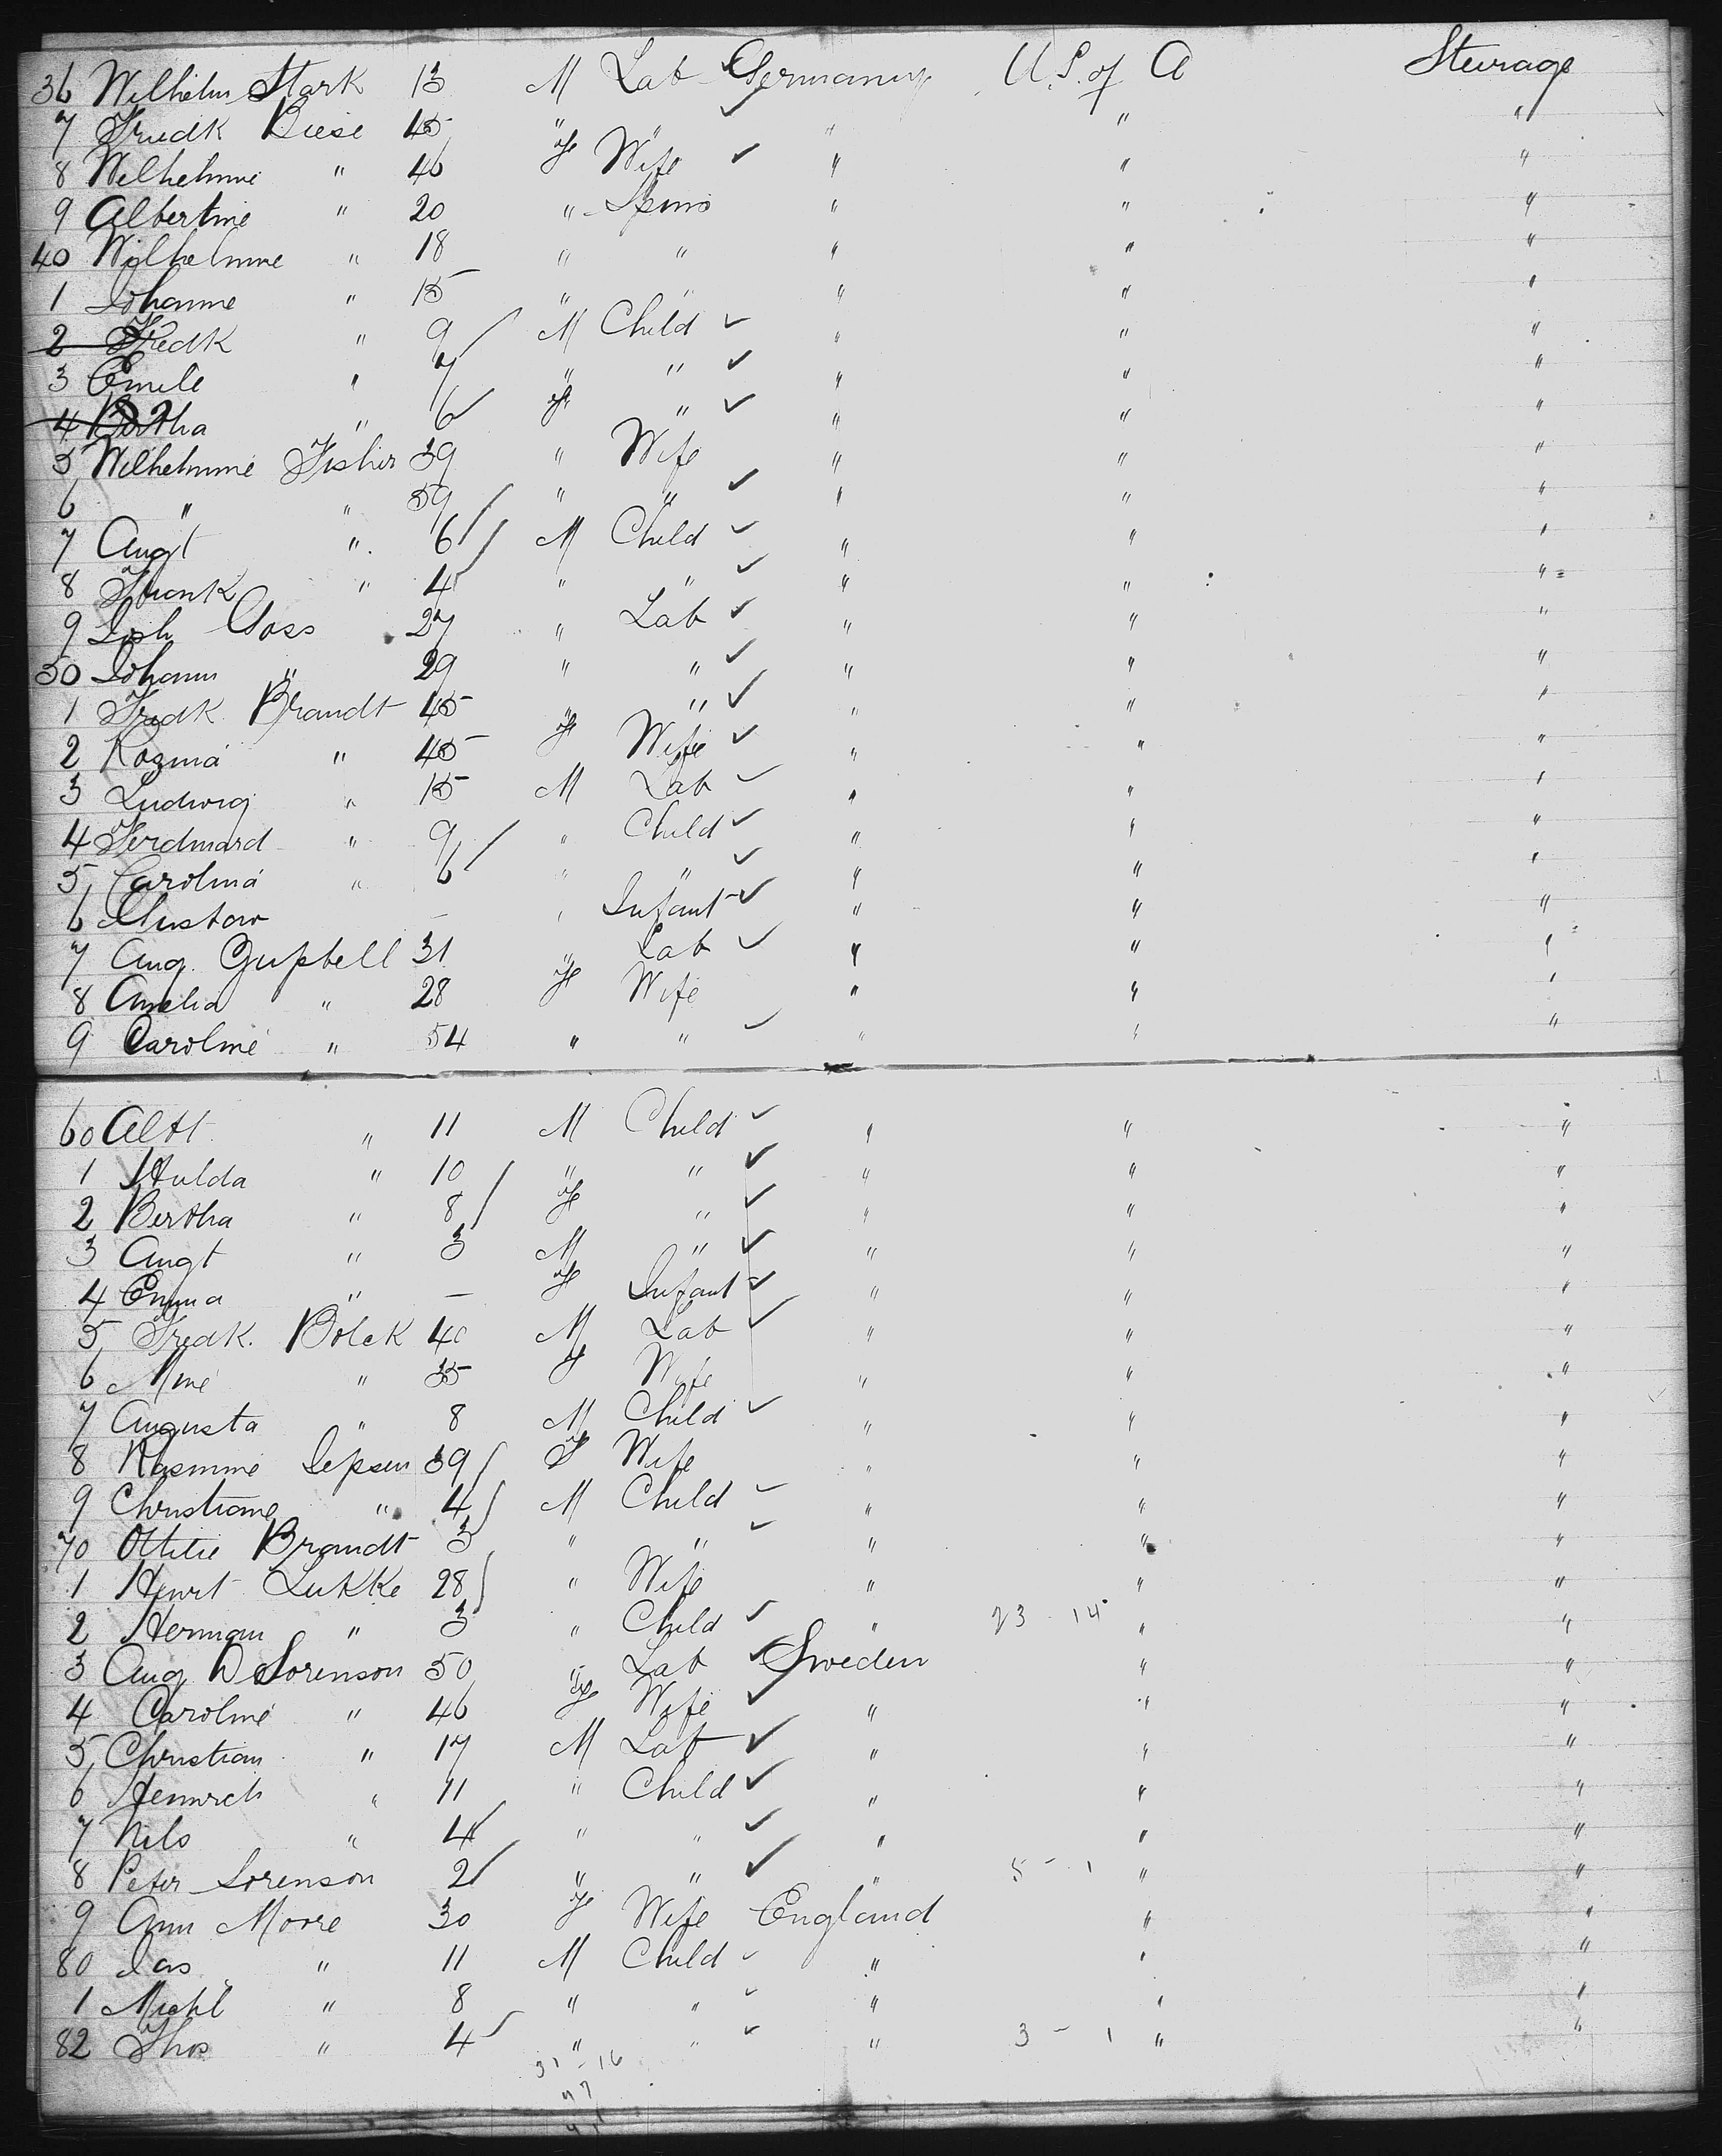 36 Wilhelm Stark 13 M Lab Germany U.S. of A Steerage
7 Fredk Biese 45 " " " " "
8 Wilhelmine " 46 F Wife " " "
9 Albertine " 20 " Spins " " "
40 Wilhelmine " 18 " " " " "
1 Johanne " 15 " " " " "
2 Fredk " 9 M Child " " "
3 Emile " 7 " " " " "
4 Bertha " 6 F " " " "
5 Wilhelmine Fisher 39 " Wife " " "
6 " " 59 " " " " "
7 Augt " 6 M Child " " "
8 Frank " 4 " " " " "
9 Josh Goss 27 " Lab " " "
50 Johann " 29 " " " " "
1 Fredk Brandt 45 " " " " "
2 Rozina " 45 F Wife " " "
3 Ludwig " 15 M Lab " " "
4 Ferdinard " 9 " Child " " "
5 Carolina " 6 " " " " "
6 Gustav – " Infant " " "
7 Aug. 31 " Lab " " "
8 Amelia " 28 F Wife " " "
9 Caroline " 54 " " " " "
60 Albt " 11 M Child " " "
1 Hulda " 10 " " " " "
2 Bertha " 8 F " " " "
3 Augt " 3 M " " " "
4 Emma " – F Infant " " "
5 Fredk. Bolck 40 M Lab " " "
6 Mine " 35 F Wife " " "
7 Augusta " 8 M Child " " "
8 Rasmine Jepsen 39 F Wife " " "
9 Christiane " 4 M Child " " "
70 Ottilie Brandt 3 " " " " "
1 Henrt Lukke 28 " Wife " " "
2 Herman " 3 " Child " 23 - 14 " "
3 Aug D Sorenson 50 " Lab Sweden " "
4 Caroline " 46 F Wife " " "
5 Christian " 17 M Lab " " "
6 Heinrich " 11 " Child " " "
7 Nils " 4 " " " " "
8 Peter Sorenson 2 " " " 5 - 1 " "
9 Ann Moore 30 F Wife England " "
80 Jas " 11 M Child " " "
1 Michl " 8 " " " " "
82 Thos " 4 " " " 3 - 1 " "
31 - 16